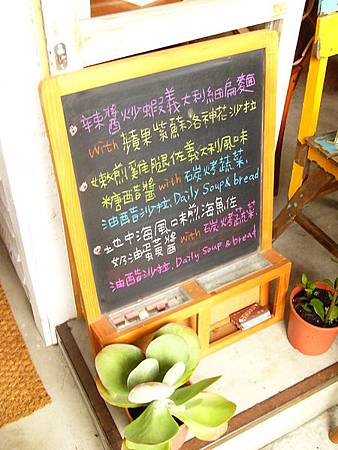 辣醬炒蝦義大利細扁麵
with 蘋果紫蘇洛神花沙拉
嫩煎雞腿佐義大利風味
糖醋醬 with 碳烤蔬菜.
油醋沙拉.Daily Soup & bread
地中海風口味煎海魚佐
奶油蛋黃醬 with 碳烤蔬菜.
油醋沙拉.Daily Soup & bread